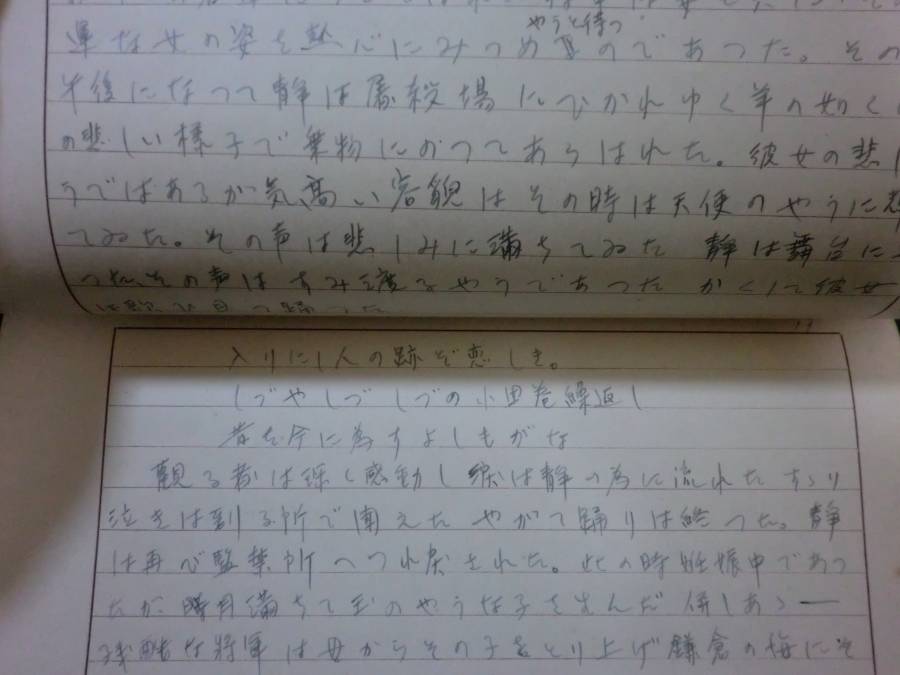 やうと待つ
運な女の姿を熱心にみつめるのであつた。その
午後になつて静は屠殺場にひかれゆく羊の如く
の悲しい様子で乗物にのつてあらはれた。彼女の悲し
うではあるが気高い容貌はその時は天使のやうに
てゐた。その声は悲しみに満ちてゐた 静は舞台に
つた、その声はすみ渡るやうであつた かくして彼女
入りにし人の跡ぞ恋しき。
しづやしづ しづの小田巻繰返し
昔を今に為すよしもがな
観る者は深く感動し涙は静の為に流れた すゝり
泣きは到る所で聞えた やがて踊りは終つた。静
は再び監禁所へつれ戻された。此の時妊娠中であつ
たが 時月満ちて玉のやうな子を生んだ 併しあゝ―
残酷な将軍は母からその子をとり上げ鎌倉の海にそ